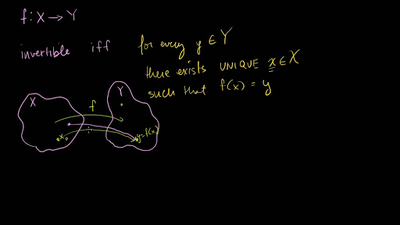 f: X → Y
invertible iff for every y ∈ Y
there exists UNIQUE x ∈ X
such that f(x) = y
X
Y
f
x₀
y=f(x₀)